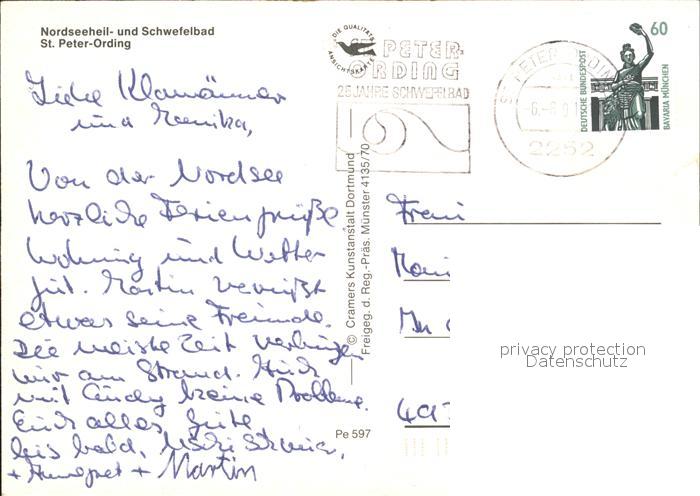 Nordseeheil- und Schwefelbad
St. Peter-Ording
DIE QUALITÄTS
ANSICHTSKARTE
ST. PETER-
ORDING
25 JAHRE SCHWEFELBAD
ST. PETER-ORDING
2252
60
DEUTSCHE BUNDESPOST
BAVARIA MÜNCHEN
Liebe
und Monika,
Von der Nordsee
herzliche Feriengrüße
Wohnung und Wetter
gut. Martin vermißt
etwas seine Freunde.
Die meiste Zeit verbringen
wir am Strand. Auch
mit Cindy keine Probleme.
Euch alles Gute
bis bald,
+ + Martin
© Cramers Kunstanstalt Dortmund
Freigeg. d. Reg.-Präs. Münster 4135/70
Pe 597
Frau
privacy protection
Datenschutz